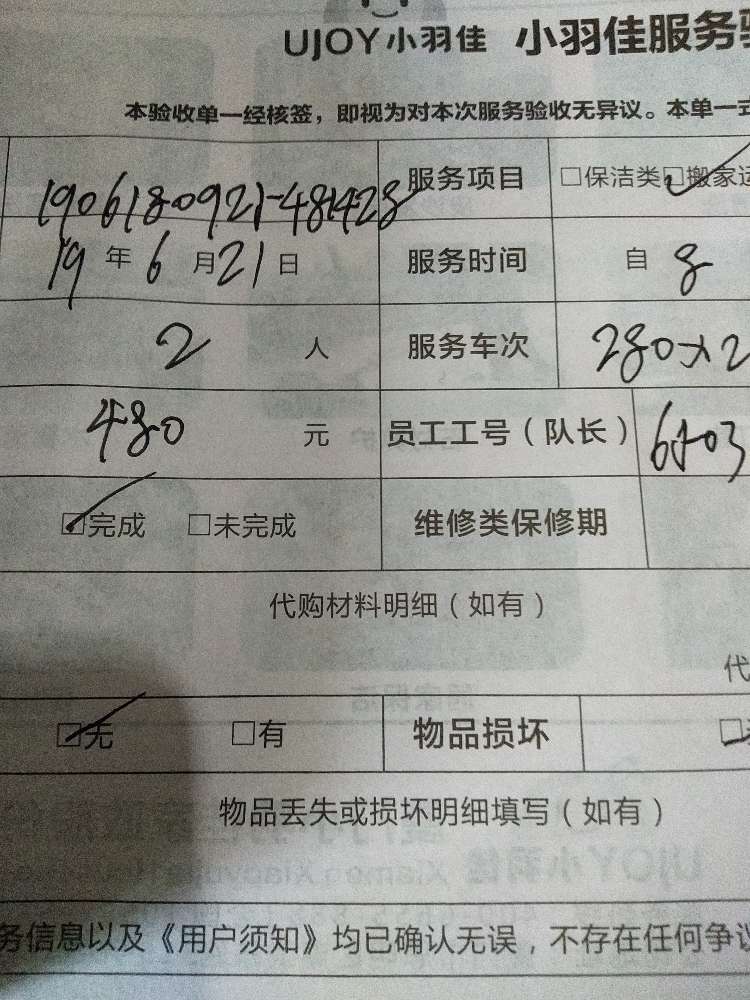 UJOY小羽佳 小羽佳服务
本验收单一经核签，即视为对本次服务验收无异议。本单一式
1906180921-481428 服务项目 □保洁类 ☑搬家运
19 年 6 月 21 日 服务时间 自 8
2 人 服务车次 280×2
480 元 员工工号（队长） 6503
☑完成 □未完成 维修类保修期
代购材料明细（如有）
代
☑无 □有 物品损坏
物品丢失或损坏明细填写（如有）
务信息以及《用户须知》均已确认无误，不存在任何争议